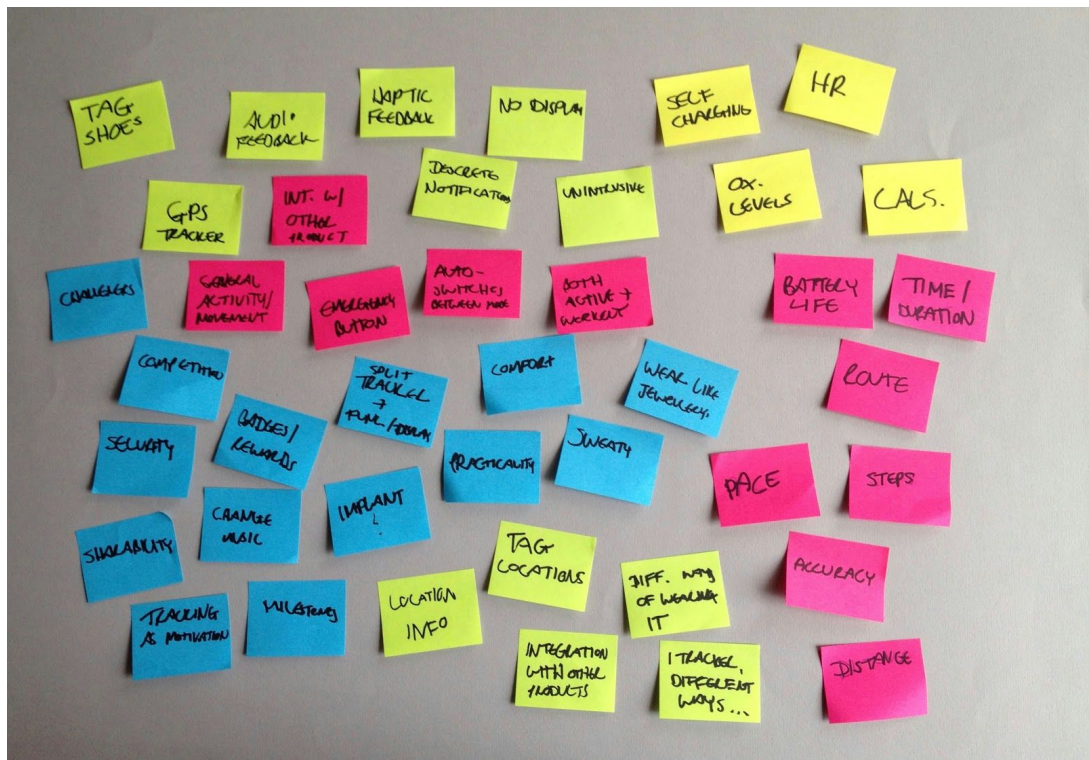 TAG
SHOES
AUDIO
FEEDBACK
HAPTIC
FEEDBACK
NO DISPLAY
SELF
CHARGING
HR
GPS
TRACKER
INT. W/
OTHER
PRODUCT
DISCRETE
NOTIFICATION
UNINTRUSIVE
OX.
LEVELS
CALS.
CHALLENGERS
GENERAL
ACTIVITY/
MOVEMENT
EMERGENCY
BUTTON
AUTO-
SWITCHES
BETWEEN MODE
BOTH
ACTIVE +
WORKOUT
BATTERY
LIFE
TIME/
DURATION
COMPETITION
BADGES/
REWARDS
SPLIT
TRACKER
+
FUNC/DISPLAY
COMFORT
WEAR LIKE
JEWELLERY.
ROUTE
SECURITY
CHANGE
MUSIC
IMPLANT
?
PRACTICALITY
SWEATY
PACE
STEPS
SHARABILITY
TRACKING
AS MOTIVATION
MILESTONES
LOCATION
INFO
TAG
LOCATIONS
DIFF. WAYS
OF WEARING
IT
ACCURACY
INTEGRATION
WITH OTHER
PRODUCTS
1 TRACKER,
DIFFERENT
WAYS...
DISTANCE